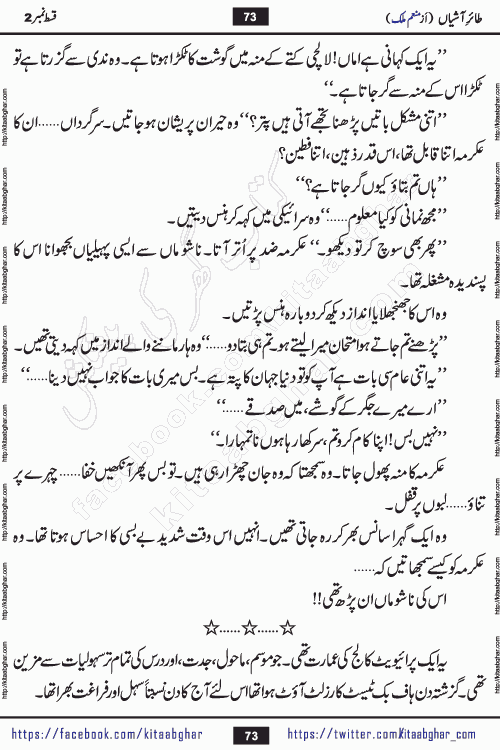 طائر آشیاں (از منعم ملک)
73
قسط نمبر 2
’’یہ ایک کہانی ہے اماں! لالچی کتے کے منہ میں گوشت کا ٹکڑا ہوتا ہے۔ وہ ندی سے گزرتا ہے تو
ٹکڑا اس کے منہ سے گر جاتا ہے۔‘‘
’’اتنی مشکل باتیں پڑھنا تجھے آتی ہیں پتر؟‘‘ وہ حیران پریشان ہو جاتیں۔ سرگرداں......ان کا
عکرمہ اتنا قابل تھا، اس قدر ذہین، اتنا فطین؟
’’ہاں تم بتاؤ کیوں گر جاتا ہے؟‘‘
’’مجھ نمانی کو کیا معلوم......‘‘ وہ سرائیکی میں کہہ کر ہنس دیتیں۔
’’پھر بھی سوچ کر تو دیکھو۔‘‘ عکرمہ ضد پر اُتر آتا۔ ناشو ماں سے ایسی پہیلیاں بجھوانا اس کا
پسندیدہ مشغلہ تھا۔
وہ اس کا جھنجھلایا انداز دیکھ کر دوبارہ ہنس پڑتیں۔
’’پڑھنے تم جاتے ہو امتحان میرا لیتے ہو۔ تم ہی بتا دو......‘‘ وہ ہار ماننے والے انداز میں کہہ دیتی تھیں۔
’’یہ اتنی عام سی بات ہے آپ کو تو دنیا جہان کا پتہ ہے۔ بس میری بات کا جواب نہیں دینا......‘‘
’’ارے میرے جگر کے گوشے، میں صدقے......‘‘
’’نہیں بس! اپنا کام کرو تم، سر کھا رہا ہوں نا تمہارا۔‘‘
عکرمہ کا منہ پھول جاتا۔ وہ سمجھتا کہ وہ جان چھڑا رہی ہیں۔ تو بس پھر آنکھیں خفا...... چہرے پر
تناؤ......لبوں پر قفل۔
وہ ایک گہرا سانس بھر کر رہ جاتی تھیں۔ انہیں اس وقت شدید بے بسی کا احساس ہوتا تھا۔ وہ
عکرمہ کو کیسے سمجھاتیں کہ......
اس کی ناشو ماں ان پڑھ تھی!!
☆......☆......☆
یہ ایک پرائیویٹ کالج کی عمارت تھی۔ جو موسم، ماحول، جدت، اور درس کی تمام تر سہولیات سے مزین
تھی۔ گزشتہ دن ہاف بک ٹیسٹ کا رزلٹ آؤٹ ہوا تھا اس لئے آج کا دن نسبتاً سہل اور فراغت بھرا تھا۔
https://facebook.com/kitaabghar
73
https://twitter.com/kitaabghar_com
http://kitaabghar.com
کتاب گھر کی پیشکش
kitaabghar.com
facebook.com/kitaabghar